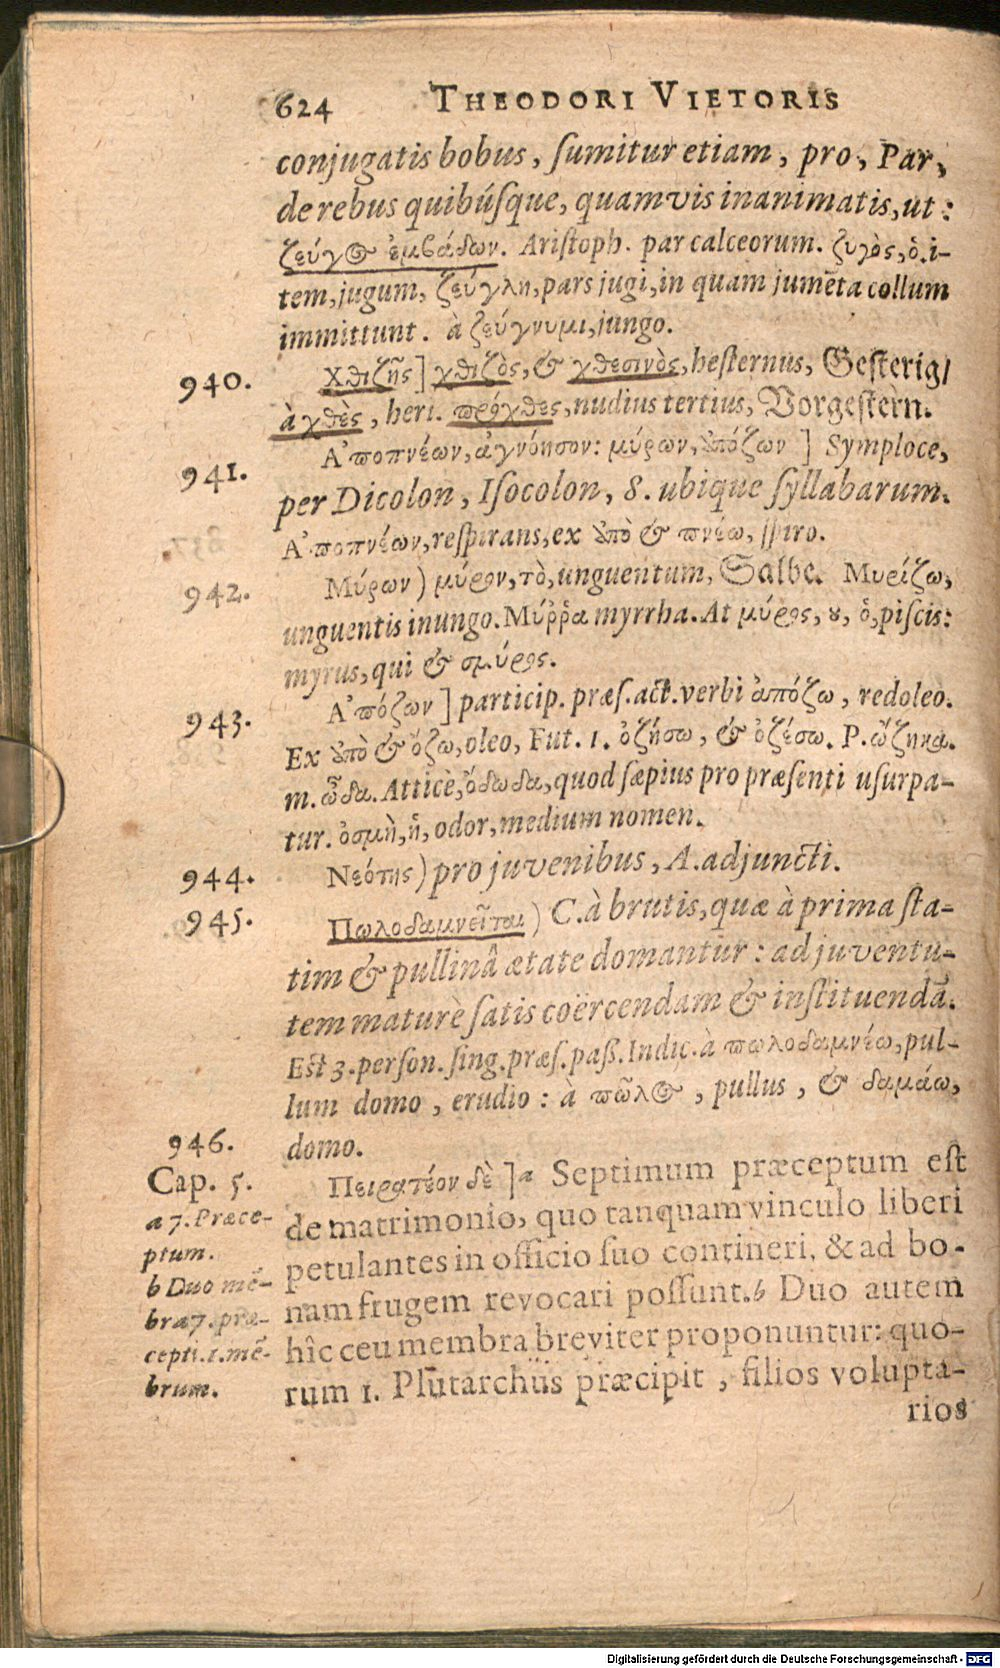 624 THEODORI VIETORIS
conjugatis bobus, ſumitur etiam, pro, Par,
de rebus quibúſque, quamvis inanimatis, ut:
ζεύγ🙰 ἐμβάδων. Ariſtoph. par calceorum. ζυγὸς, ὁ. i-
tem, jugum, ζεύγλη, pars jugi, in quam jumēta collum
immittunt. à ζεύγνυμι, jungo.
940. Χθιζῆς] χθιζὸς, & χθεσινὸς, heſternus, Geſterig/
à χθὲς, heri. πρόχθες, nudius tertius, Vorgeſtern.
941. Α᾿ποπνέων, ἀγνόησον: μύρων, ἀπόζων ] Symploce,
per Dicolon, Iſocolon, 8. ubique ſyllabarum.
Α᾿ποπνέων, reſpirans, ex ἀπὸ & πνέω, ſpiro.
942. Μύρων) μύρον, τὸ, unguentum, Salbe. Μυρίζω,
unguentis inungo. Μύῤῥα myrrha. At μύρος, ȣ, ὁ, piſcis:
myrus, qui & σμύρος.
943. Α᾿πόζων ] particip. præſ. act. verbi ἀπόζω, redoleo.
Ex ἀπὸ & ὄζω, oleo, Fut. 1. ὀζήσω, & ὀζέσω. P. ὤζηκα.
m. ὦδα. Atticè, ὄδωδα, quod ſæpius pro præſenti uſurpa-
tur. ὀσμὴ, ἡ, odor, medium nomen.
944. Νεότης) pro juvenibus, A. adjuncti.
945. Πωλοδαμνεῖται ) C. à brutis, quæ à prima ſta-
tim & pullinâ ætate domantur: ad juventu-
tem maturè ſatis coërcendam & inſtituendā.
Eſt 3. perſon. ſing. præſ. paß. Indic. à πωλοδαμνέω, pul-
lum domo, erudio: à πῶλ🙰, pullus, & δαμάω,
domo.
946.
Cap. 5.
a 7. Præce-
ptum.
b Duo mē-
bra 7. præ-
cepti. 1. mē-
brum.
Πειρατέον δὲ ] a Septimum præceptum eſt
de matrimonio, quo tanquam vinculo liberi
petulantes in officio ſuo contineri, & ad bo-
nam frugem revocari poſſunt. b Duo autem
hîc ceu membra breviter proponuntur: quo-
rum 1. Plutarchus præcipit, filios volupta-
rios
Digitalisierung gefördert durch die Deutsche Forschungsgemeinschaft - DFG